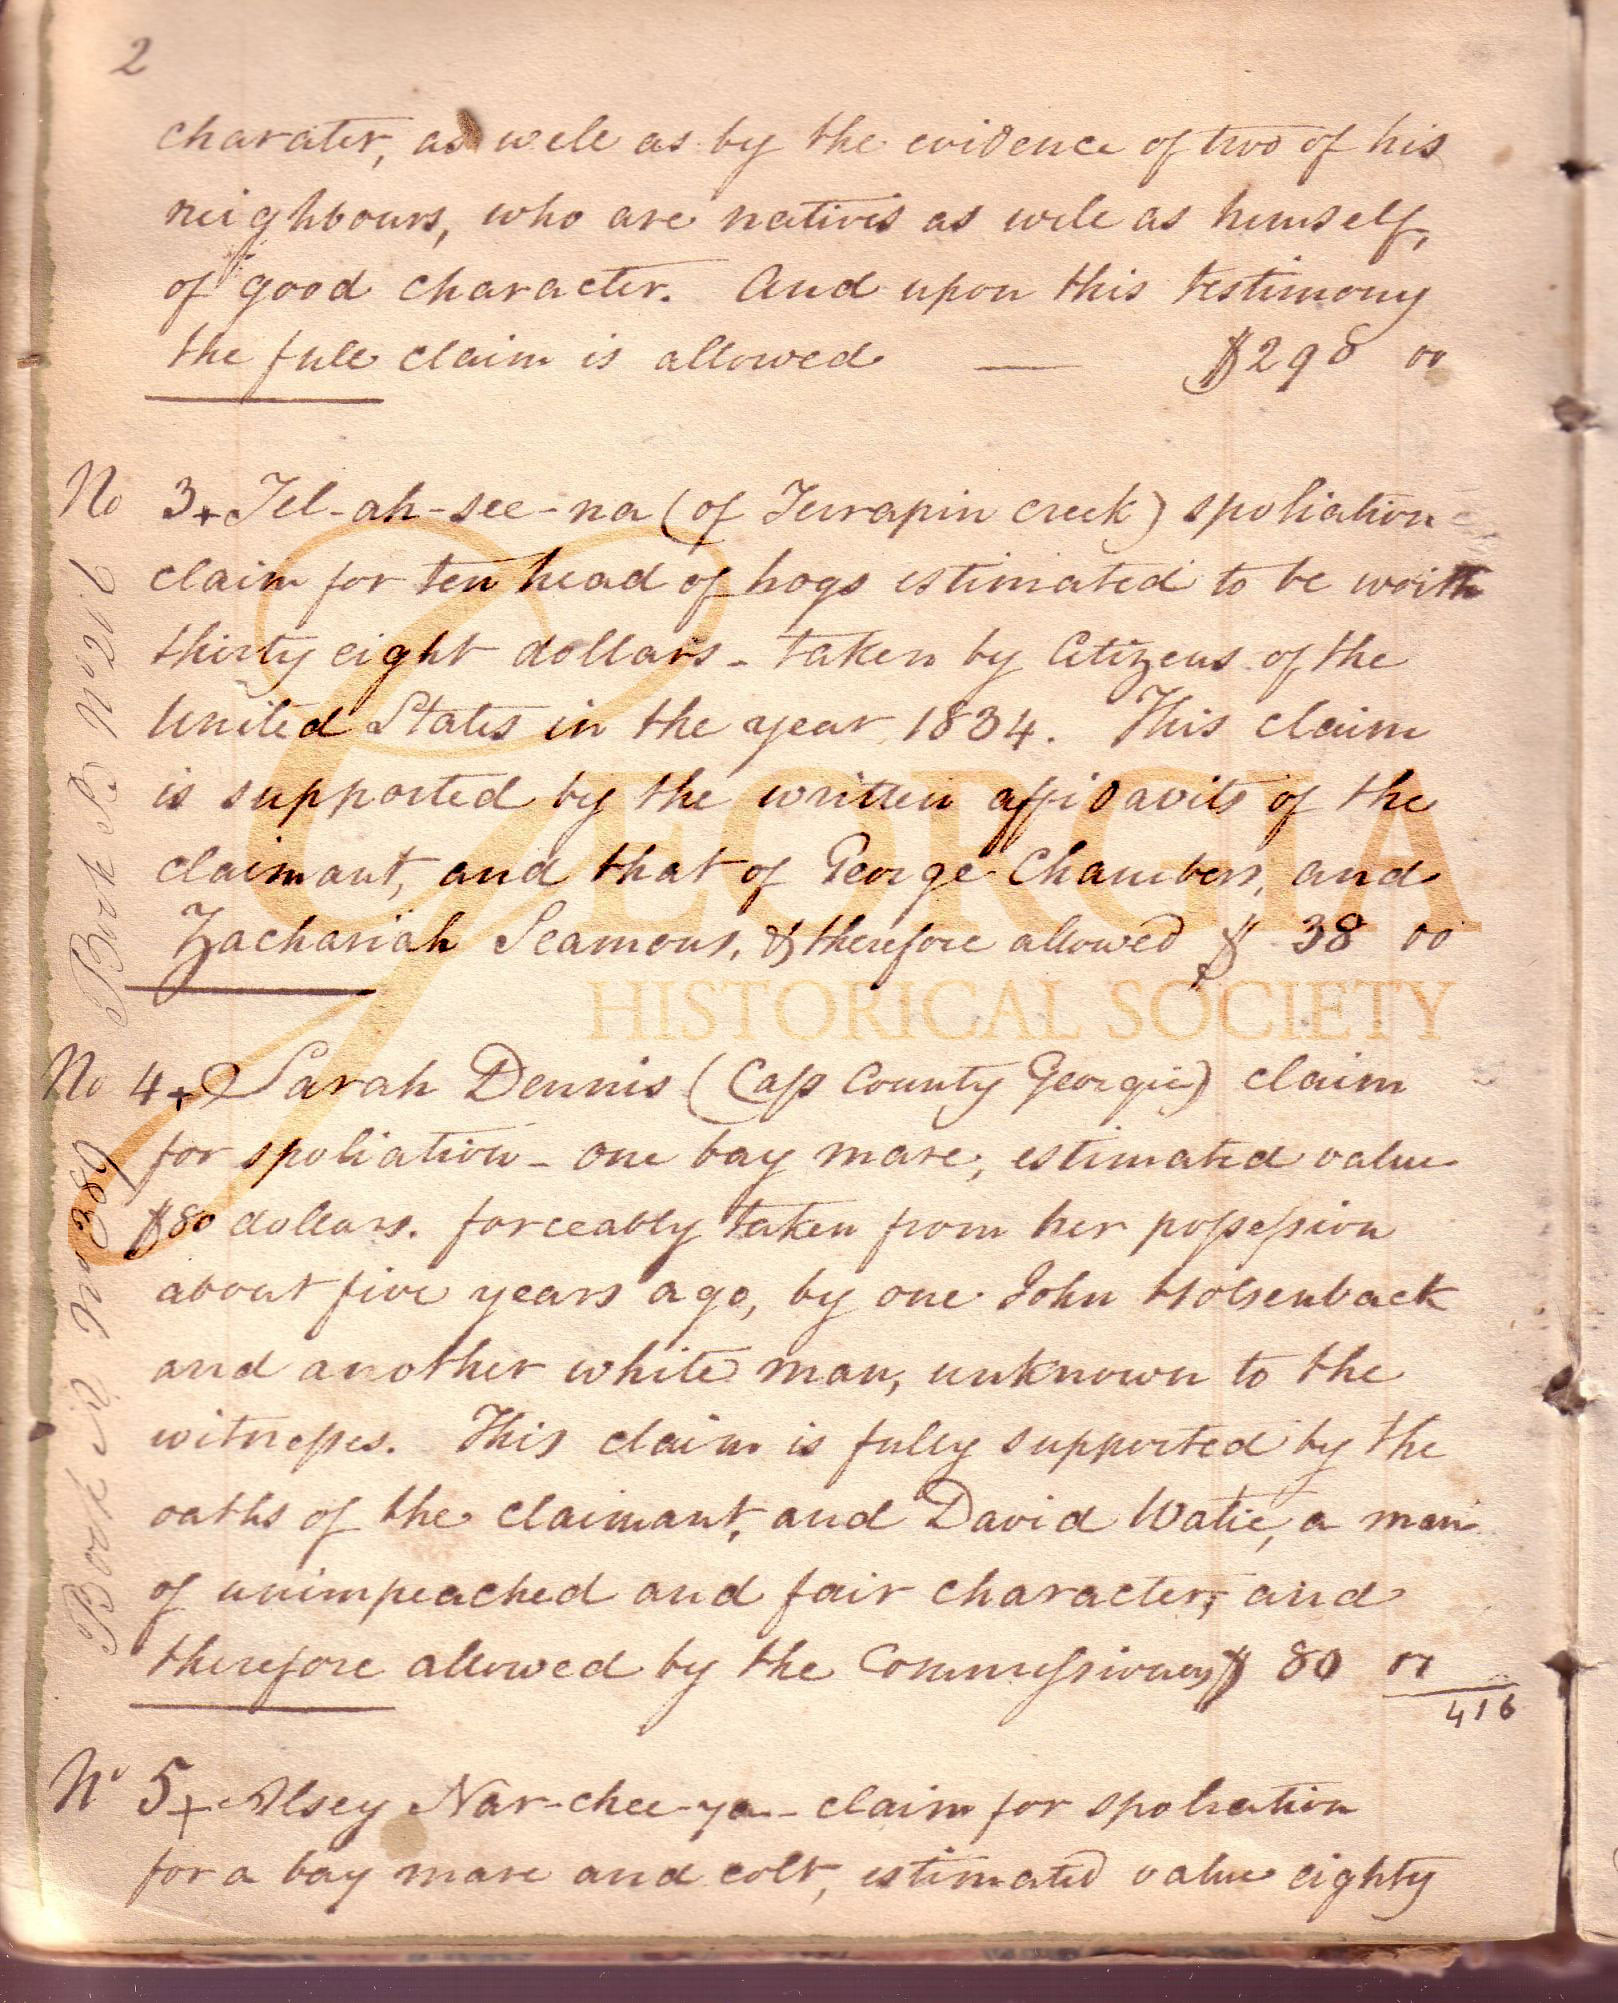 2
charater, as well as by the evidence of two of his
neighbours, who are natives as well as himself,
of good character. And upon this testimony
the full claim is allowed — $298 00
No 3+ Tel-ah-see-na (of Terrapin creek) spoliation
claim for ten head of hogs estimated to be worth
thirty eight dollars - taken by Citizens of the
United States in the year 1834. This claim
is supported by the written affidavits of the
claimant, and that of George Chambers, and
Zachariah Seamous, & therefore allowed $ 38 00
No 4+ Sarah Dennis (Cass County Georgia) claim
for spoliation - one bay mare, estimated value
$80 dollars. forceably taken from her possession
about five years ago, by one John Holsenback
and another white man, unknown to the
witnesses. This claim is fully supported by the
oaths of the claimant, and David Watie, a man
of unimpeached and fair character, and
therefore allowed by the Commissioners $ 80 00
416
No 5+ Alsey Nar-chee-ya - claim for spoliation
for a bay mare and colt, estimated value eighty
Book B No
Book No 389
GEORGIA
HISTORICAL SOCIETY